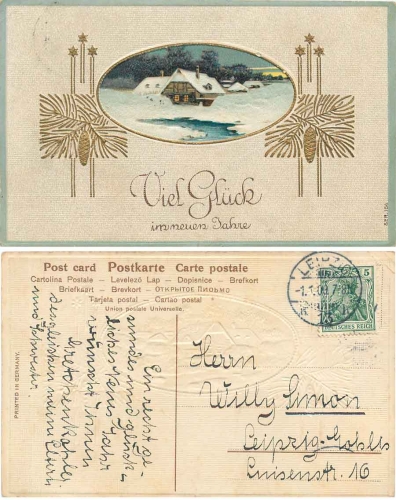 Viel Glück
im neuen Jahre
Post card Postkarte Carte postale
Cartolina Postale – Levelező Lap – Dopisnice – Brefkort
Briefkaart – Brevkort – ОТКРЫТОЕ ПИСЬМО
Tarjeta postal – Cartao postal
Union postale Universelle.
LEIPZIG
5
DEUTSCHES REICH
Herrn
Willy Simon
Leipzig-Gohlis
Luisenstr. 16
Ein recht ge-
sundes und glück-
liches Neues Jahr
wünscht Ihnen
Gretchen
desgleichen meine Eltern
und
PRINTED IN GERMANY.